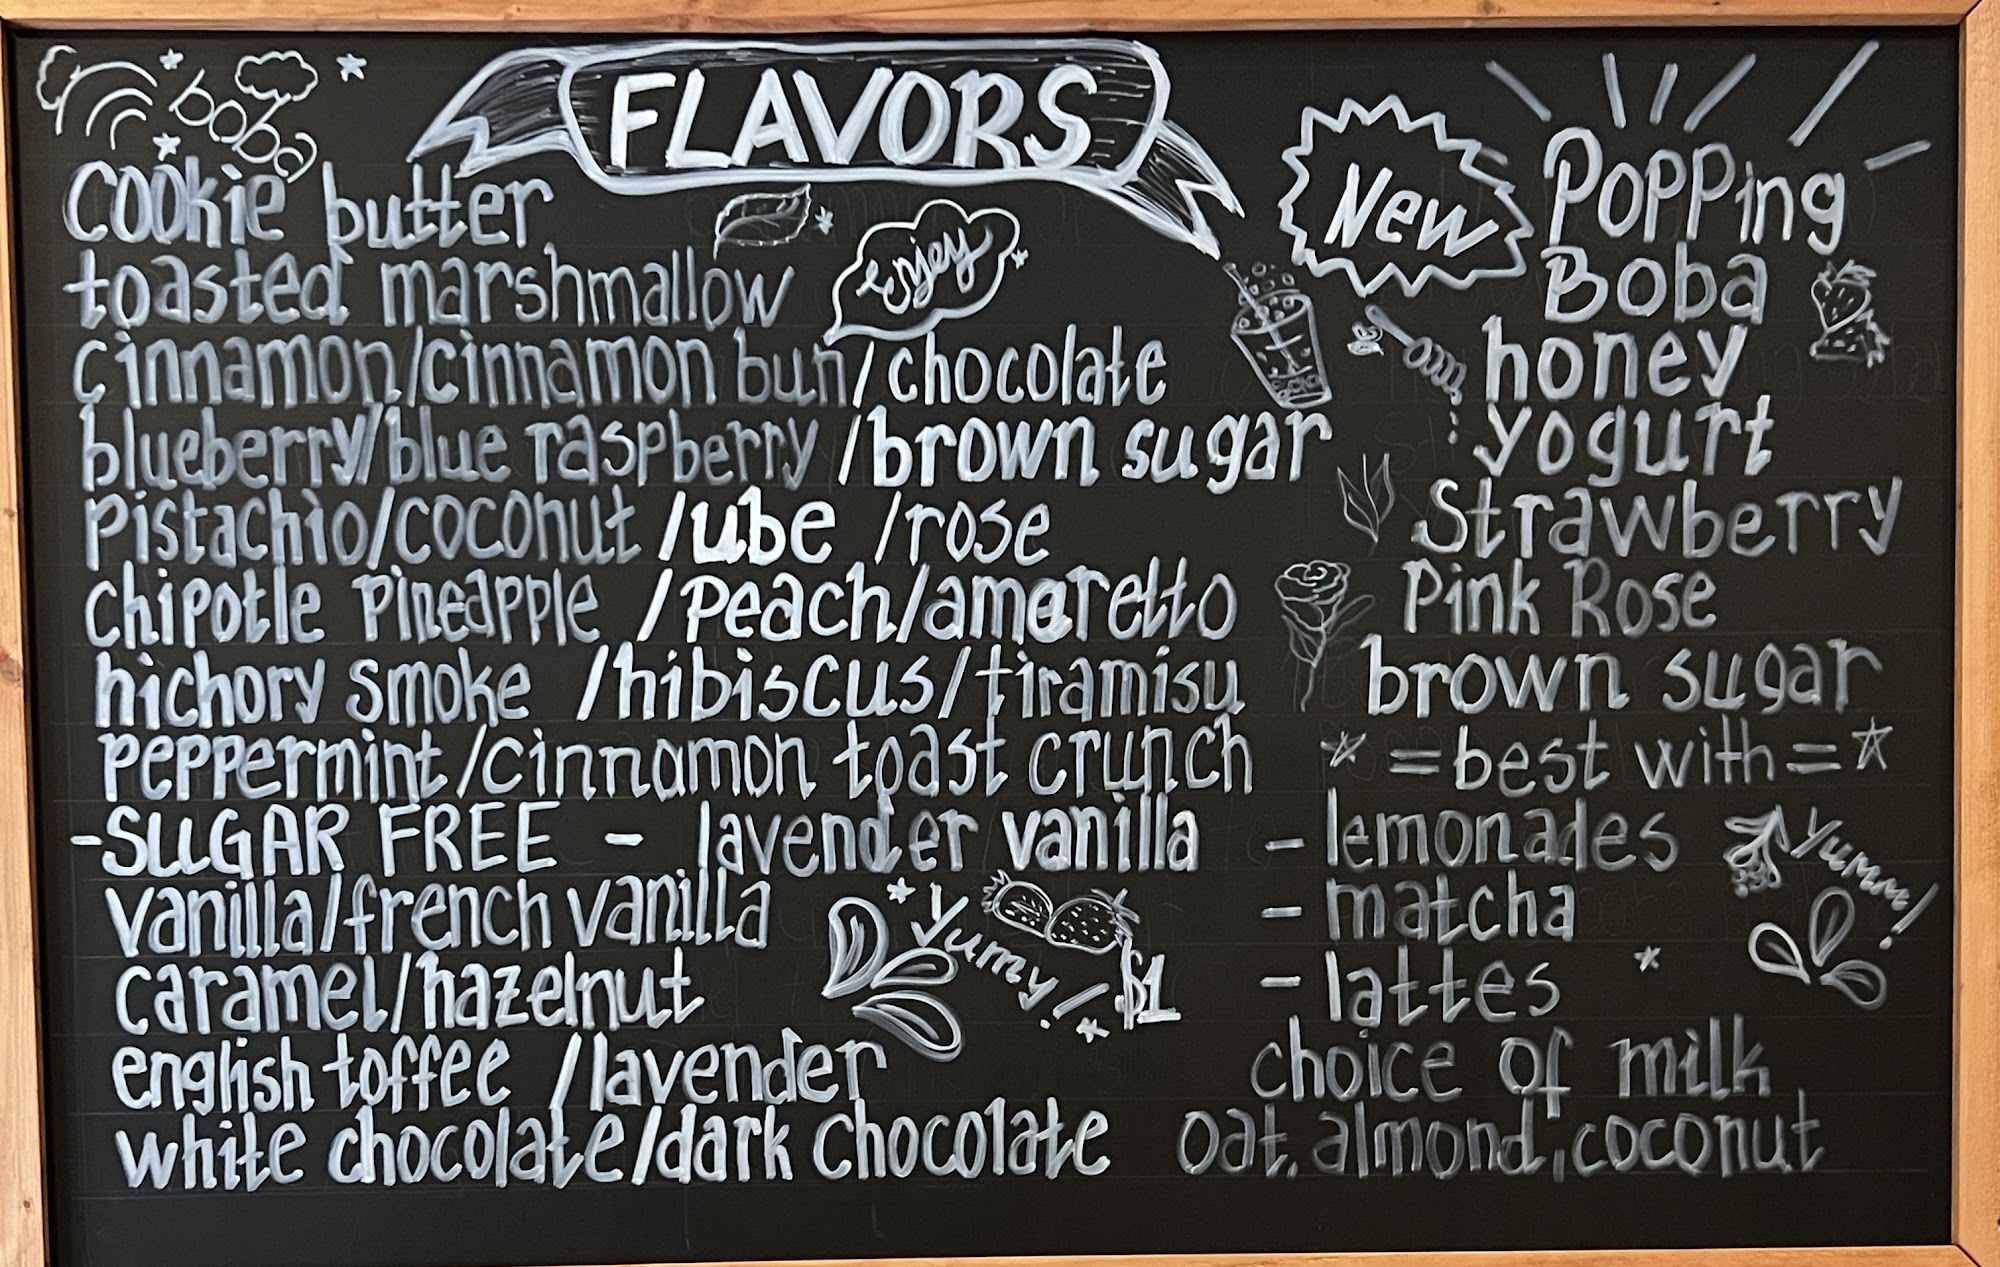 boba
FLAVORS
cookie butter
toasted marshmallow
enjoy
cinnamon/cinnamon bun/chocolate
blueberry/blue raspberry/brown sugar
pistachio/coconut/ube/rose
chipotle pineapple/peach/amaretto
hichory smoke/hibiscus/tiramisu
peppermint/cinnamon toast crunch
-SUGAR FREE - lavender vanilla
vanilla/french vanilla
caramel/hazelnut
Yumy!
$1
english toffee/lavender
white chocolate/dark chocolate
New
Popping
Boba
honey
yogurt
Strawberry
Pink Rose
brown sugar
*=best with=*
- lemonades
- matcha
- lattes
Yumm!
choice of milk
oat, almond, coconut